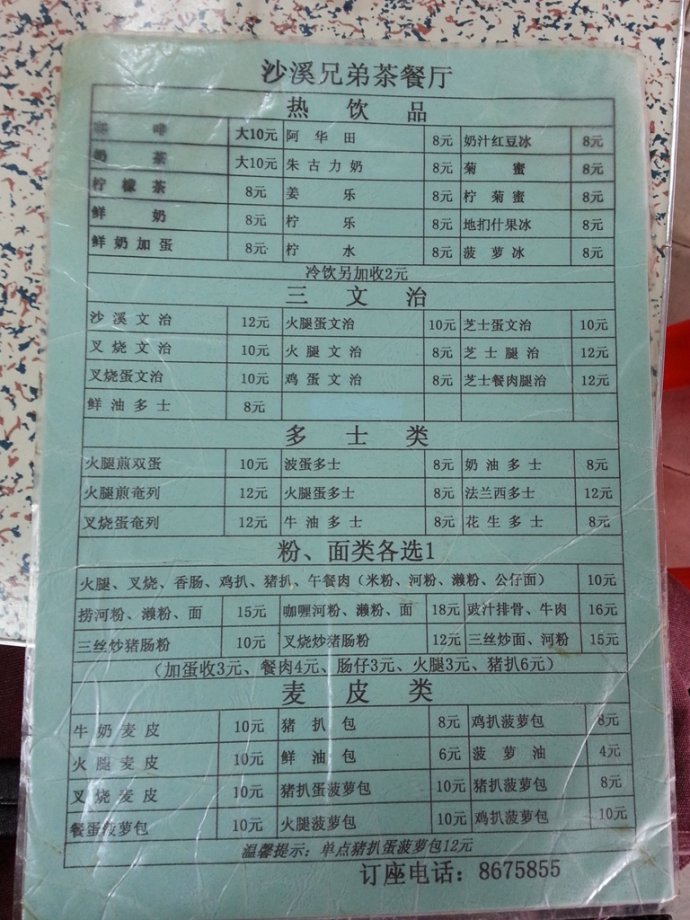 沙溪兄弟茶餐厅
热 饮 品
咖 啡 大10元 阿 华 田 8元 奶汁红豆冰 8元
奶 茶 大10元 朱 古 力 奶 8元 菊 蜜 8元
柠 檬 茶 8元 姜 乐 8元 柠 菊 蜜 8元
鲜 奶 8元 柠 乐 8元 地扪什果冰 8元
鲜 奶 加 蛋 8元 柠 水 8元 菠 萝 冰 8元
冷饮另加收2元
三 文 治
沙 溪 文 治 12元 火腿蛋文治 10元 芝士蛋文治 10元
叉 烧 文 治 10元 火 腿 文 治 8元 芝 士 腿 治 12元
叉烧蛋文治 10元 鸡 蛋 文 治 8元 芝士餐肉腿治 12元
鲜 油 多 士 8元
多 士 类
火腿煎双蛋 10元 波蛋多士 8元 奶 油 多 士 8元
火腿煎奄列 12元 火腿蛋多士 8元 法兰西多士 12元
叉烧蛋奄列 12元 牛 油 多 士 8元 花 生 多 士 8元
粉、面类各选1
火腿、叉烧、香肠、鸡扒、猪扒、午餐肉（米粉、河粉、濑粉、公仔面） 10元
捞河粉、濑粉、面 15元 咖喱河粉、濑粉、面 18元 豉汁排骨、牛肉 16元
三丝炒猪肠粉 10元 叉烧炒猪肠粉 12元 三丝炒面、河粉 15元
（加蛋收3元、餐肉4元、肠仔3元、火腿3元、猪扒6元）
麦 皮 类
牛 奶 麦 皮 10元 猪 扒 包 8元 鸡扒菠萝包 8元
火 腿 麦 皮 10元 鲜 油 包 6元 菠 萝 油 4元
叉 烧 麦 皮 10元 猪扒蛋菠萝包 10元 猪扒菠萝包 8元
餐蛋菠萝包 10元 火腿菠萝包 10元 鸡扒菠萝包 10元
温馨提示：单点猪扒蛋菠萝包12元
订座电话：8675855